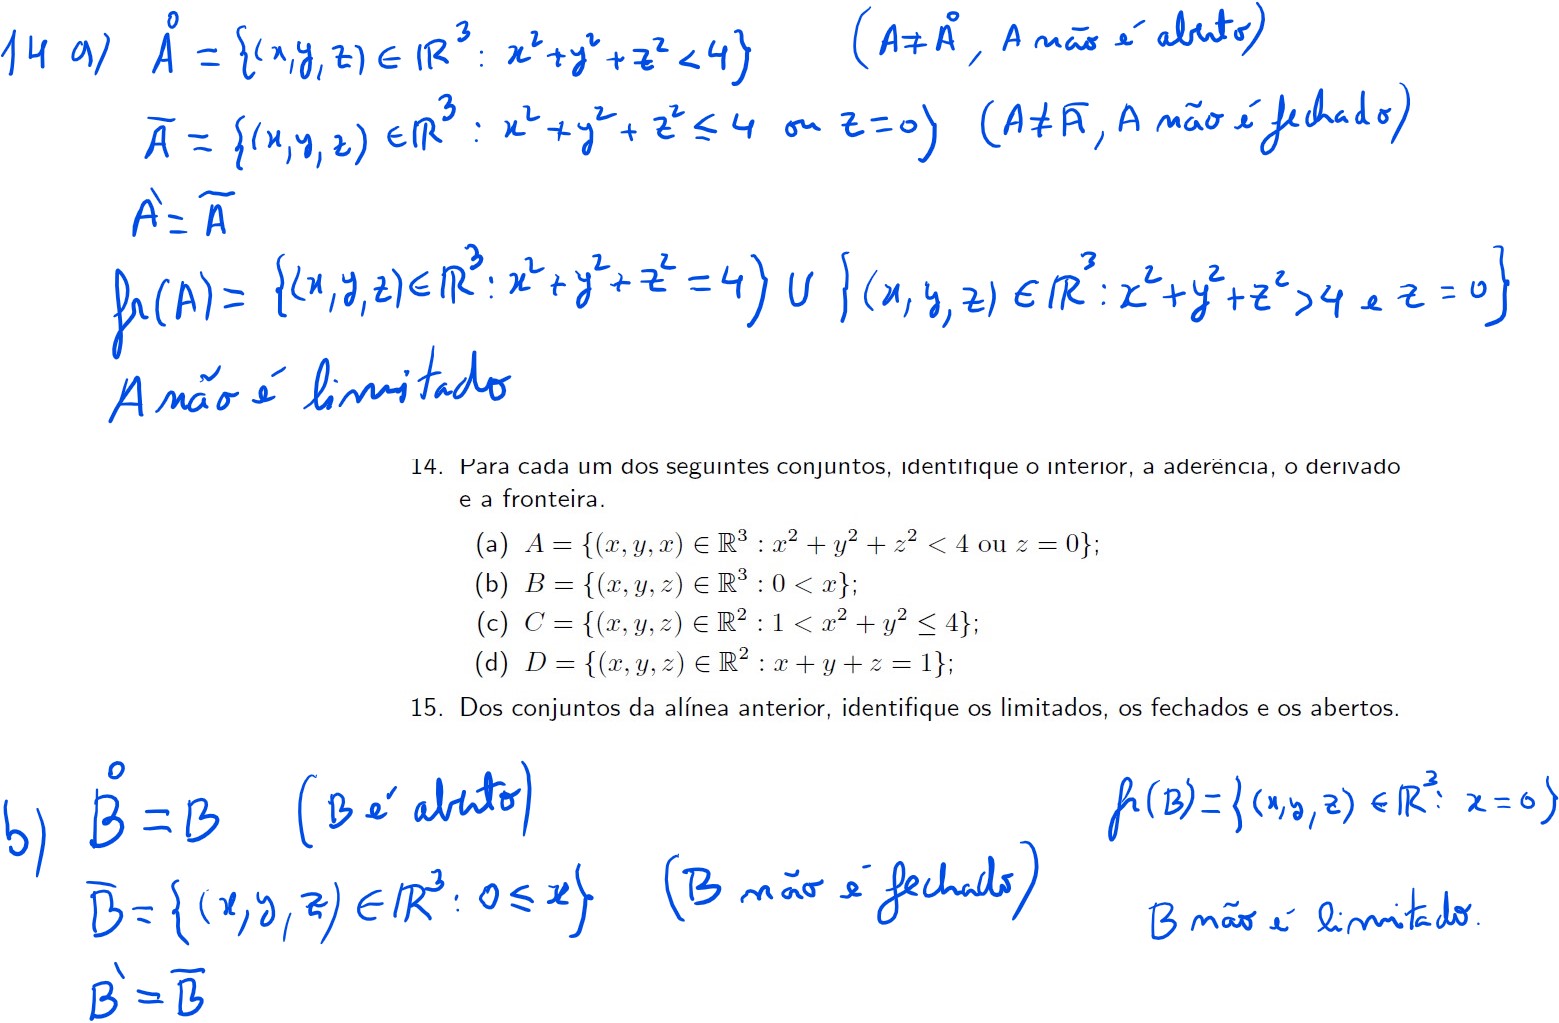 14 a) Å = {(x,y,z) ∈ ℝ³ : x²+y²+z² < 4} (A ≠ Å, A não é aberto)
A̅ = {(x,y,z) ∈ ℝ³ : x²+y²+z² ≤ 4 ou z=0} (A ≠ A̅, A não é fechado)
A` = A̅
fr(A) = {(x,y,z) ∈ ℝ³ : x²+y²+z² = 4} ∪ {(x,y,z) ∈ ℝ³ : x²+y²+z² > 4 e z = 0}
A não é limitado
14. Para cada um dos seguintes conjuntos, identifique o interior, a aderência, o derivado
e a fronteira.
(a) A = {(x, y, x) ∈ ℝ³ : x² + y² + z² < 4 ou z = 0};
(b) B = {(x, y, z) ∈ ℝ³ : 0 < x};
(c) C = {(x, y, z) ∈ ℝ² : 1 < x² + y² ≤ 4};
(d) D = {(x, y, z) ∈ ℝ² : x + y + z = 1};
15. Dos conjuntos da alínea anterior, identifique os limitados, os fechados e os abertos.
b) B̊ = B (B é aberto)
fr(B) = {(x,y,z) ∈ ℝ³ : x = 0}
B̅ = {(x,y,z) ∈ ℝ³ : 0 ≤ x} (B não é fechado)
B não é limitado.
B` = B̅